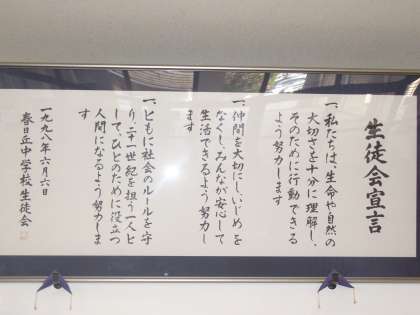 生徒会宣言
一、私たちは、生命や自然の
大切さを十分に理解し、
そのために行動できる
よう努力します
一、仲間を大切にし、いじめを
なくし、みんなが安心して
生活できるよう努力し
ます
一、ともに社会のルールを守
り、二十一世紀を担う一人と
して、ひとのために役立つ
人間になるよう努力しま
す
一九九八年六月六日
春日丘中学校生徒会